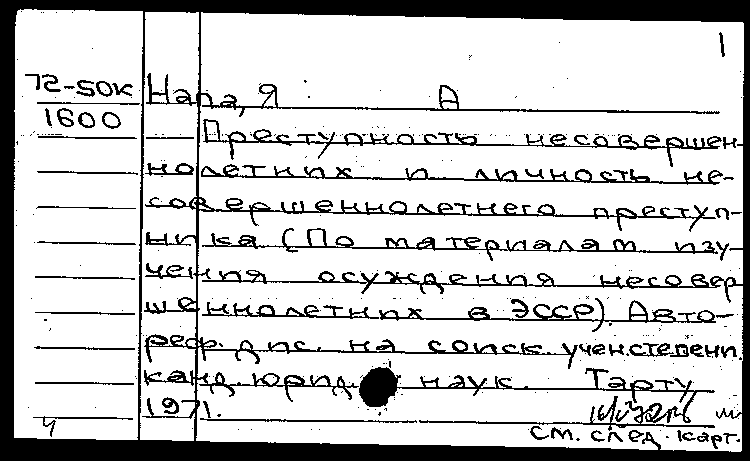 1
72-50к Напа, Я А
1600 Преступность несовершен-
нолетних и личность не-
совершеннолетнего преступ-
ника (По материалам изу-
чения осуждения несовер
шеннолетних в ЭССР). Авто-
реф. дис. на соиск. учен. степени
канд. юрид. наук. Тарту
1971.
Ч
см. след. карт.